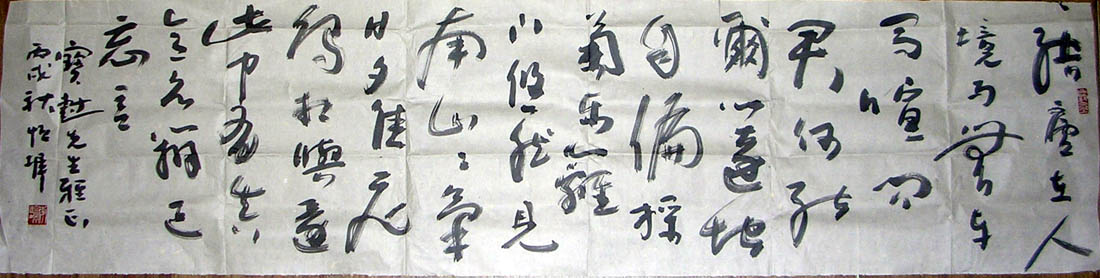 結廬在人
境而無車
馬喧問
君何能
爾心遠地
自偏採
菊東籬
下悠然見
南山々氣
日夕佳飛
鳥相與還
此中有真
意欲辨已
忘言
寶先生雅正
丙戌秋